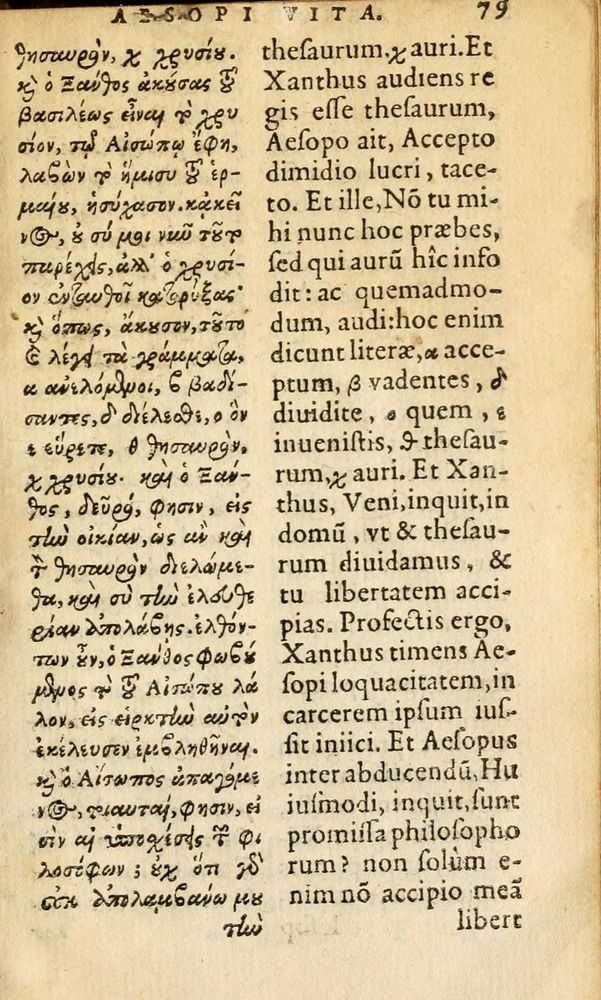 AESOPI VITA. 79
θησαυρὸν, χ χρυσίου.
καὶ ὁ Ξάνθος ἀκούσας τοῦ
βασιλέως εἶναι τὸ χρυ
σίον, τῷ Αἰσώπῳ ἔφη,
λαβὼν τὸ ἥμισυ τοῦ ἑρ-
μαίου, ἡσύχασον. κἀκεῖ
νος, οὐ σύ μοι νῦν τοῦτο
παρέχεις, ἀλλ' ὁ χρυσί-
ον ἐνταυθοῖ κατορύξας·
καὶ ὅπως, ἄκουσον, τοῦτο
λέγει τὰ γράμματα,
α ἀνελόμενοι, β βαδί-
σαντες, δ διέλεσθε, ο ὃν
ε εὕρετε, θ θησαυρὸν,
χ χρυσίου. καὶ ὁ Ξάν-
θος, δεῦρο, φησιν, εἰς
τὴν οἰκίαν, ὡς ἂν καὶ
τὸν θησαυρὸν διελώμε-
θα, καὶ σὺ τὴν ἐλευθε
ρίαν ἀπολάβης. ἐλθόν-
των οὖν, ὁ Ξάνθος φοβού
μενος τὸ τοῦ Αἰσώπου λά
λον, εἰς εἱρκτὴν αὐτὸν
ἐκέλευσεν ἐμβληθῆναι.
καὶ ὁ Αἴσωπος ἀπαγόμε
νος, τοιαῦται, φησιν, εἰ
σὶν αἱ ὑποχέσεις τῶν φι
λοσόφων; οὐχ ὅτι γὰρ
ἀπολαμβάνω μου
τὴν
theſaurum, χ auri. Et
Xanthus audiens re
gis eſſe theſaurum,
Aeſopo ait, Accepto
dimidio lucri, tace-
to. Et ille, Nõ tu mi-
hi nunc hoc præbes,
ſed qui aurũ hîc info
dit: ac quemadmo-
dum, audi: hoc enim
dicunt literæ, α acce-
ptum, β vadentes, δ
diuidite, ο quem, ε
inueniſtis, θ theſau-
rum, χ auri. Et Xan-
thus, Veni, inquit, in
domũ, vt & theſau-
rum diuidamus, &
tu libertatem acci-
pias. Profectis ergo,
Xanthus timens Ae-
ſopi loquacitatem, in
carcerem ipſum iuſ-
ſit iniici. Et Aeſopus
inter abducendũ, Hu
iuſmodi, inquit, ſunt
promiſſa philoſopho
rum? non ſolùm e-
nim nõ accipio meã
libert